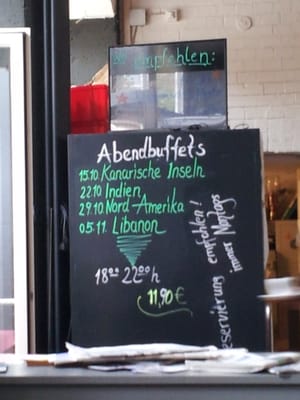 empfohlen:
Abendbuffets
15.10. Kanarische Inseln
22.10 Indien
29.10. Nord-Amerika
05.11. Libanon
18⁰⁰ 22⁰⁰ h
11,90 €
eservierung empfohlen!
immer Montags